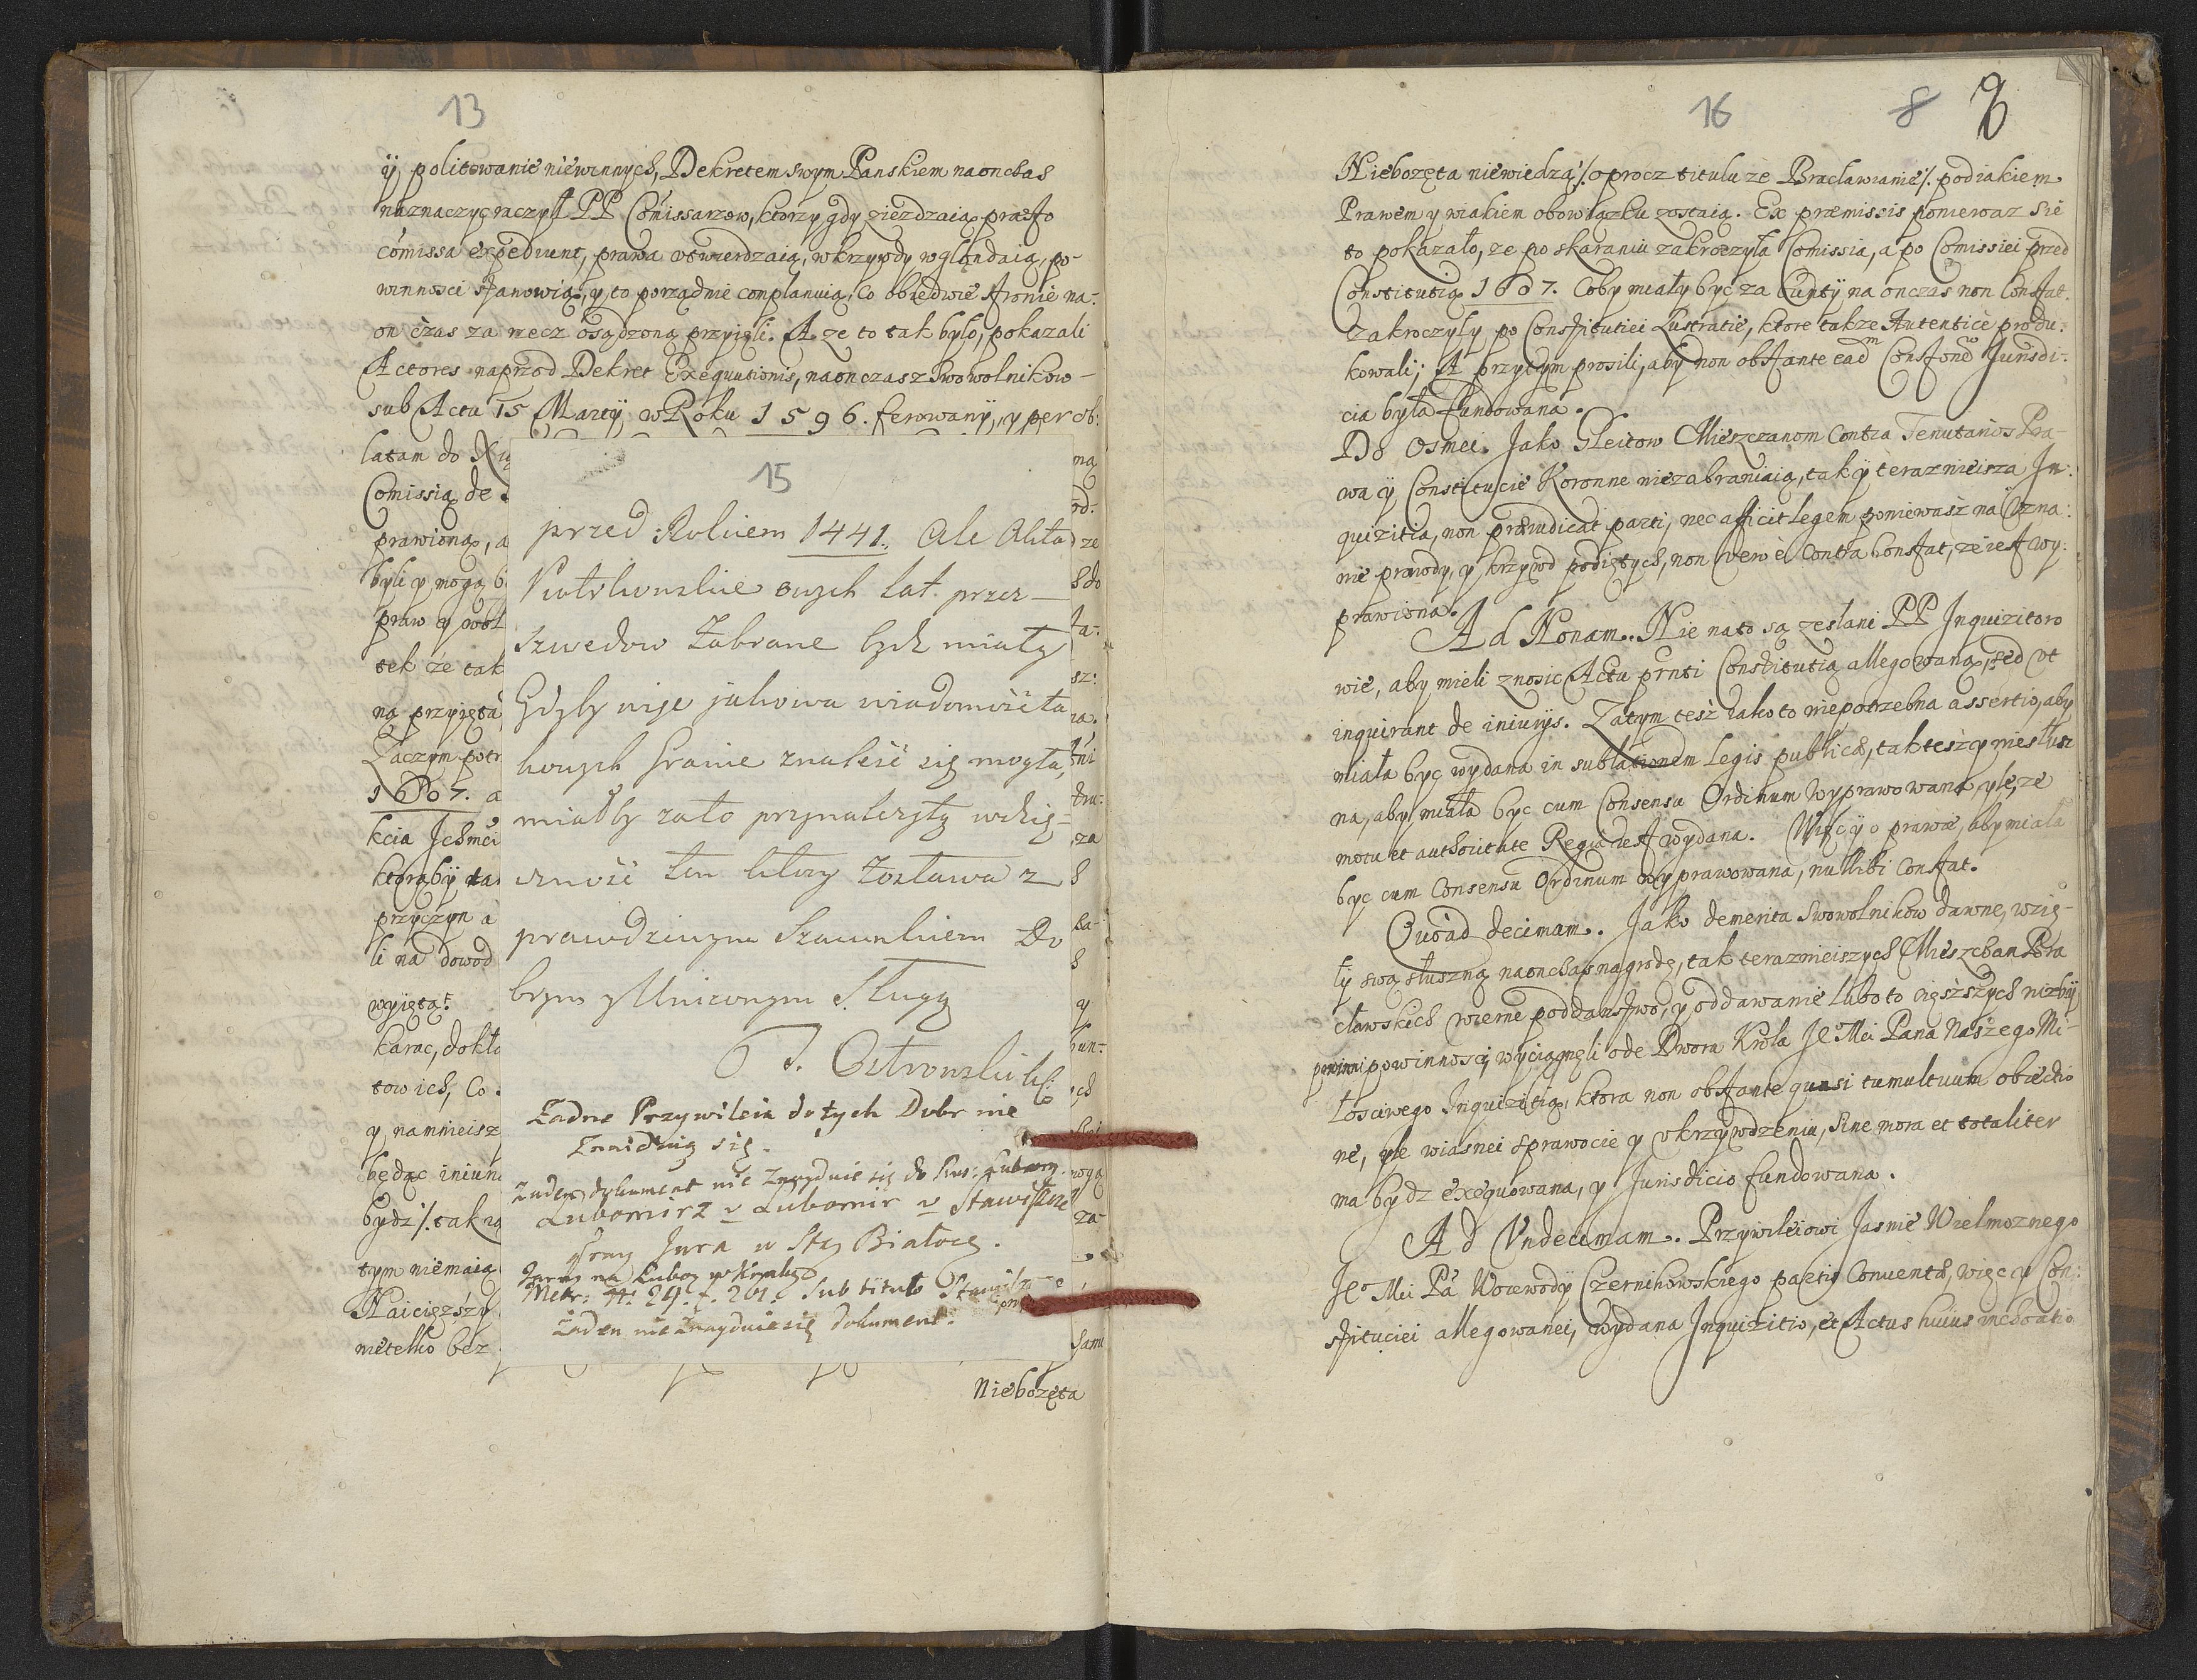 13
ÿ politowanie niewinnych, Dekretem swym Panskiem naonchas
naznaczyc raczył PP Comissarzow, ktorzy gdy ziezdzaią praesto
comissa expediunt, prawa utwierdzaią, w krzywdy wglondaią, po-
winnosci stanowią, y to porządnie complanuią, Co obiedwie stronie na-
on czas za rzecz osądzoną przyięli. A ze to tak bylo, pokazali
Actores naprzod Dekret Exequutionis, naonczas z Swowolnikow
sub Actu 15 Martÿ w Roku 1596. ferowanÿ, y per ob:
latam do Xię
Comissią de
prawioną, a
byli y mogą b
praw y wol
tek ze tak
ną przyięta
Zaczym potr
1607. a
kcia Jchmci
ktoraby ta
przyczyn a
li na dowod
wyięta
karac, dokł
tow ich, Co
y namnieisz
będąc iniun
bydz ./. tak zą
tym niemaią
Naicięzszy
nietelko bez
Niebozęta
15
przed Rokiem 1441. Ale Akta
Piotrkowskie owych lat przez
Szwedow Zabrane bydz miały
Gdyby wije jakowa wiadomość ta
kowych Granic znaleść się mogła,
miałby zato przynależytą wdzię-
czność ten ktory Zostawa z
prawdziwym Szacunkiem Do
brym y Uniżonym Sługą
T. Ostrowski
Zadne Przywileia do tych Dobr nie
Znaidują się.
Zaden dokument nie Znayduie się do
Lubomirz v Lubomir v Stawiszcze
przy Jura w Stey Białocer.
Metr: 29. f. 201. Sub titulo
Zaden nie Znayduie się dokument.
16
8
8
Niebozęta niewiedzą ./. oprocz titulu ze Braclawianie ./. pod iakiem
Prawem y w iakiem obowiązku zostaią. Ex praemissis poniewaz sie
to pokazało, ze po skaraniu zakroczyła Comissia, a po Comissiei przed
Constitutią 1607. Coby miały byc za buntÿ na onczas non Constat.
Zakroczyły po Constitutiei Lustratie, ktore takze Autentice produ:
kowali; A przytym prosili, aby non obstante eadm Constone Jurisdi:
cia była fundowana.
Do Osmei. Jako Gleitow Mieszczanom Contra Tenutarios Pra-
wa ÿ Constitucie Koronne niezabraniaią, tak ÿ teraznieisza In:
quizitia, non praeiudicat parti, nec afficit legem poniewasz na Uzna:
nie prawody, y krzywd podiętych, non vero è Contra Constat, ze iest wy:
prawiona.
Ad Nonam. Nie nato są zesłani PP Inquizitoro
wie, aby mieli znosic Acta prnti Constitutią allegowaną, sed ut
inquirant de iniurÿs. Zatym tesz iako to niepotrzebna assertio, aby
miała byc wydana in sublationem Legis publicae, tak tesz y niesłusz
na, aby miała byc cum Consensu Ordinum wyprawowana, yle, ze
motu et authoritate Regia iest wydana. Więc ÿ o prawie, aby miala
byc cum Consensu Ordinum wyprawowana, nullibi Constat.
Quo ad decimam. Jako demerita Swowolnikow dawne, wzię-
ły swą słuszną naonchas nagrodę, tak teraznieiszych Mieszchan Bra
cławskich wierne poddanstwo, y oddawanie lubo to cięszszych nizby
powinni powinnosci, wyciągnęli ode Dworu Krola Je° Mci Pana Naszego Mi-
łosciwego Inquizitią, ktora non obstante quasi tumultuum obiectio
ne, yle wiasnei sprawocie y ukrzywdzeniu, sine mora et totaliter
ma bydz exequowana, y Jurisdicio fundowana.
Ad Undecimam. Przywileiowi Jasnie Wielmoznego
Je° Mci Pa Woiewody Czernihowskiego pactis Conventis, więc y Con:
stituciei allegowanei, wydana Inquizitio, et Actus huius inchoatio